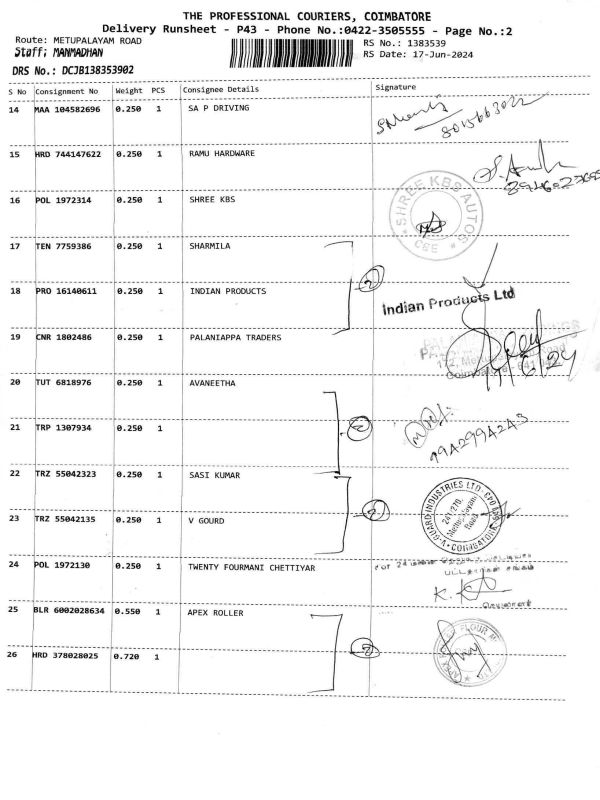 THE PROFESSIONAL COURIERS, COIMBATORE
Delivery Runsheet - P43 - Phone No.:0422-3505555 - Page No.:2
Route: METUPALAYAM ROAD
RS No.: 1383539
Staff; MANMADHAN
RS Date: 17-Jun-2024
DRS No.: DCJB138353902
S No Consignment No Weight PCS Consignee Details Signature
14 MAA 104582696 0.250 1 SA P DRIVING
8015663022
15 HRD 744147622 0.250 1 RAMU HARDWARE
16 POL 1972314 0.250 1 SHREE KBS
SHREE KBS AUTOS
CBE
17 TEN 7759386 0.250 1 SHARMILA
2
18 PRO 16140611 0.250 1 INDIAN PRODUCTS
Indian Products Ltd
19 CNR 1802486 0.250 1 PALANIAPPA TRADERS
20 TUT 6818976 0.250 1 AVANEETHA
21 TRP 1307934 0.250 1
2
22 TRZ 55042323 0.250 1 SASI KUMAR
23 TRZ 55042135 0.250 1 V GOURD
2
V-GUARD INDUSTRIES LTD
Mettupalayam
Road
COIMBATORE
24 POL 1972130 0.250 1 TWENTY FOURMANI CHETTIYAR
25 BLR 6002028634 0.550 1 APEX ROLLER
26 HRD 378028025 0.720 1
2